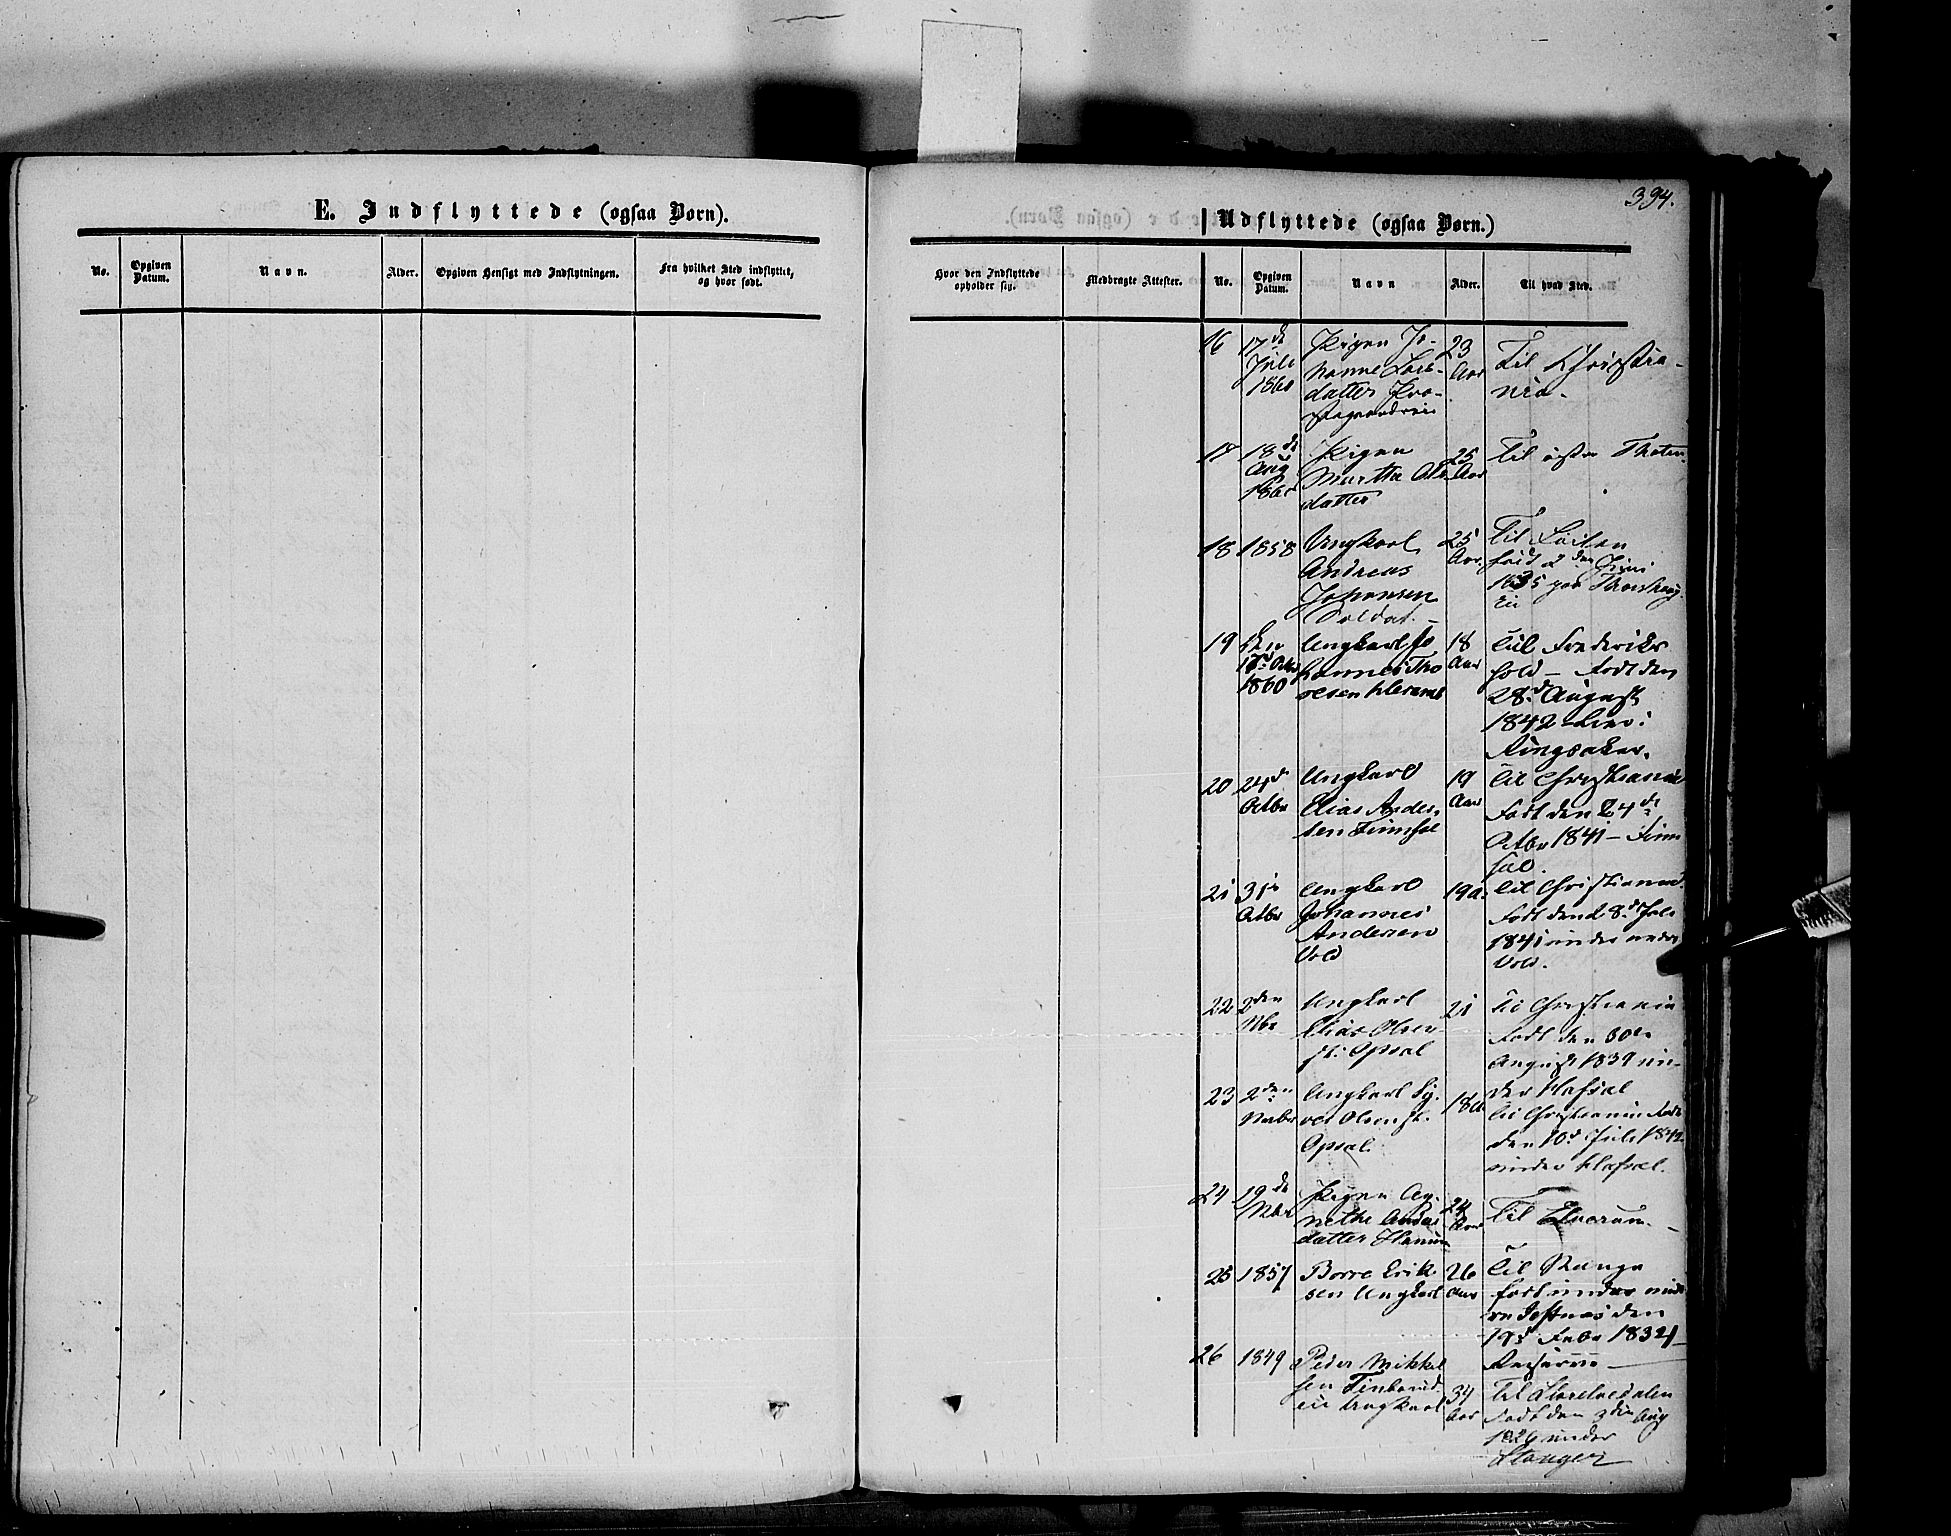 394.
E. Indflyttede (ogsaa Børn).
Udflyttede (ogsaa Børn.)
No.
Opgiven Datum.
Navn.
Alder.
Opgiven Hensigt med Indflytningen.
Fra hvilket Sted indflyttet, og hvor født.
Hvor den Indflyttede opholder sig.
Medbragte Attester.
No.
Opgiven Datum.
Navn
Alder.
Til hvad Sted.
16 17de Juli 1860 Pigen Jo-
hanne Lars-
datter
23 Aar
Til Christia-
nia.
17 18de Aug 1860 Pigen
Marthe Ols-
datter
25 Aar
Til østre Thoten.
18 1858 Ungkarl
Andreas
Johansen
Soldat.
25 Aar
Til Løiten
født 2den Juni
1835 paa
Eie
19 Den 1860 Ungkarl Jo
hannes Tho
resen
18 Aar
Til Frederiks
hold - Født den
28d August
1842
Ringsaker.
20 24d Octbr Ungkarl
Elias Ander-
sen Finnsal
19 Aar
Til Christiania
Født den 24de
Octbr 1841 - Finn
sal.
21 31te Octbr Ungkarl
Johannes
Andersen
Vold
19 a.
Til Christiania.
Født den 28d Juli
1841 under nedre
Vold.
22 2den Nbr Ungkarl
Elias Olsen
Opsal
21
Til Christiania
Født den 30te
August 1839 un-
der Hafsal
23 2den Novbr Ungkarl Sy-
ver Olsen
Opsal.
18 a
Til Christiania Født
den 10d Juli 1842
under Hafsal.
24 19de Nbr Pigen Ag-
nethe Anders
datter
24 Aar
Til Elverum.
25 1857 Borre Erik-
sen Ungkarl
26 Aar
Til Stange
født under
den
19d Febr 1832
26 1849 Peder Mikkel
sen
Eie Ungkarl
34 Aar
Til Storelvedalen
Født den 3die Aug
1826 under
Stanger